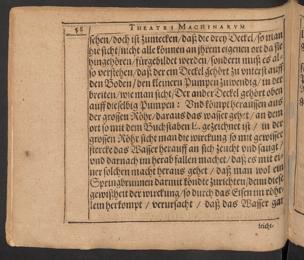 58 THEATRI MACHINARVM
sehen/doch ist zumercken/daß die drey Deckel/so man
hie sicht/nicht alle können an ihrem eigenen ort da sie
hingehören/fürgebildet werden/sondern muß es al-
so verstehen/daß der ein Deckel gehört zu unterst auff
den Boden/den kleinern Pumpen zuwendig/in der
breiten/wie man sicht/Der ander Deckel gehört oben
auff dieselbig Pumpen: Und kömpt heraussen auß
der grossen Röhr/daraus das wasser gehet/an dem
ort so mit dem Buchstaben E. gezeichnet ist/in der
grossen Röhr sicht man die wirckung so mit gewisser
stercke das Wasser herauff an sich zeucht und saugt/
und darnach im herab fallen machet/daß es mit ei-
ner solchen macht heraus gehet/daß man wol ein
Springbrunnen darmit köndte zurichten/denn diese
gewißheit der wirckung/so durch das Eisen im röhr-
lein herkompt/verursacht/daß das Wasser gar